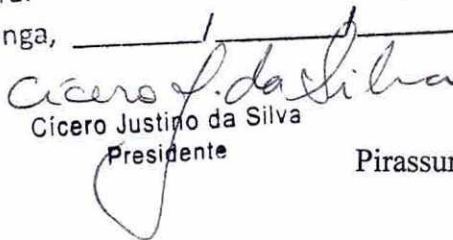 nga, ____/____/____
Cícero J. da Silva
Cícero Justino da Silva
Presidente
Pirassu